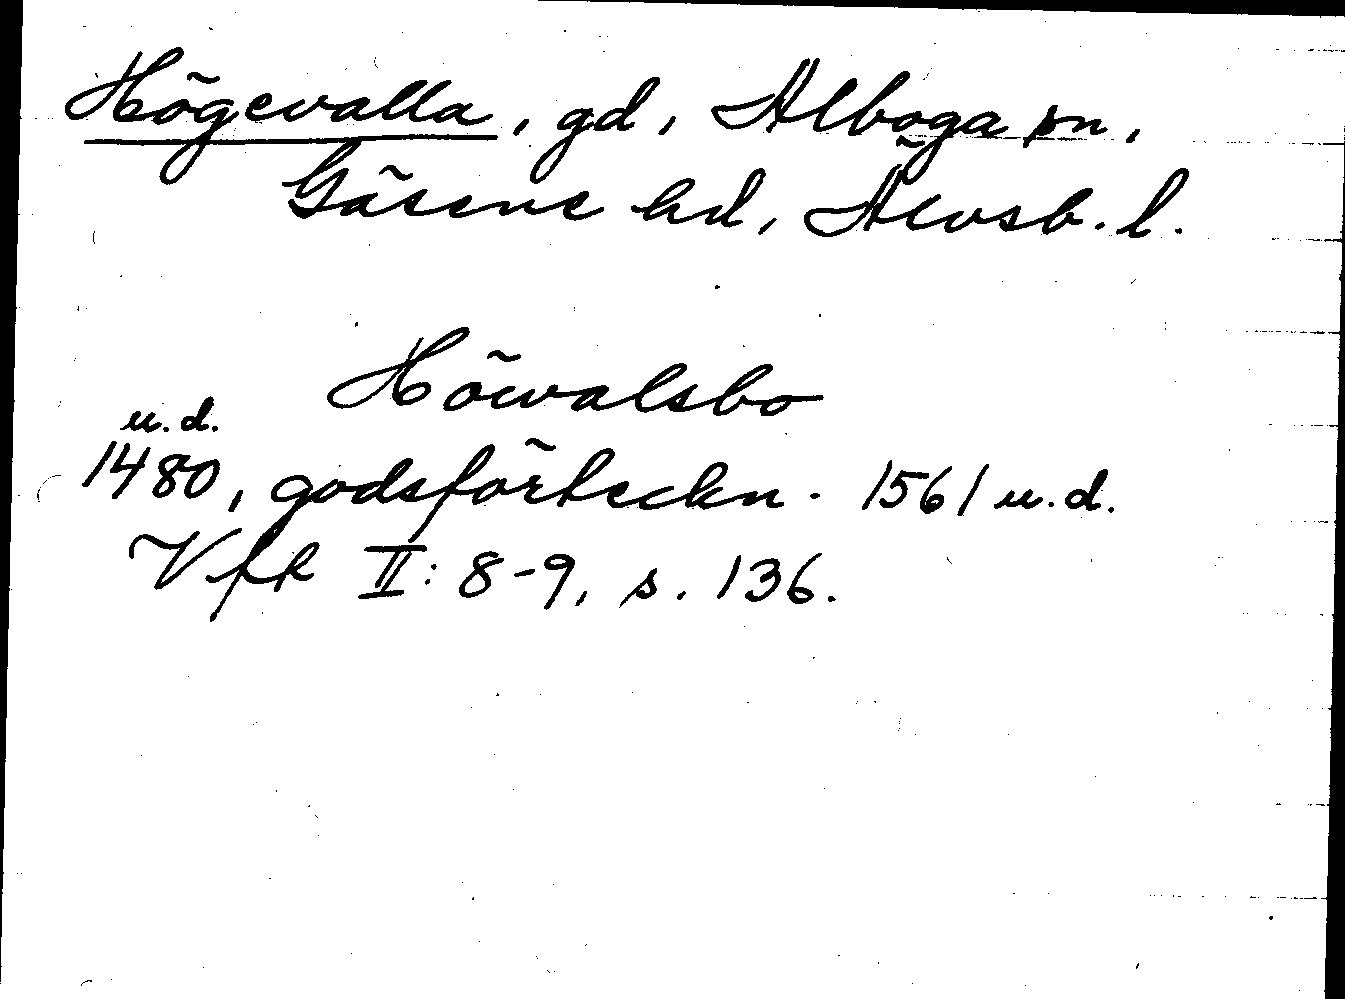 Högevalla, gd, Alboga sn,
Gäsene hd, Älvsb. l.
Höwalsbo
u.d.
1480, godsförteckn. 1561 u.d.
Vfh II: 8-9, s. 136.